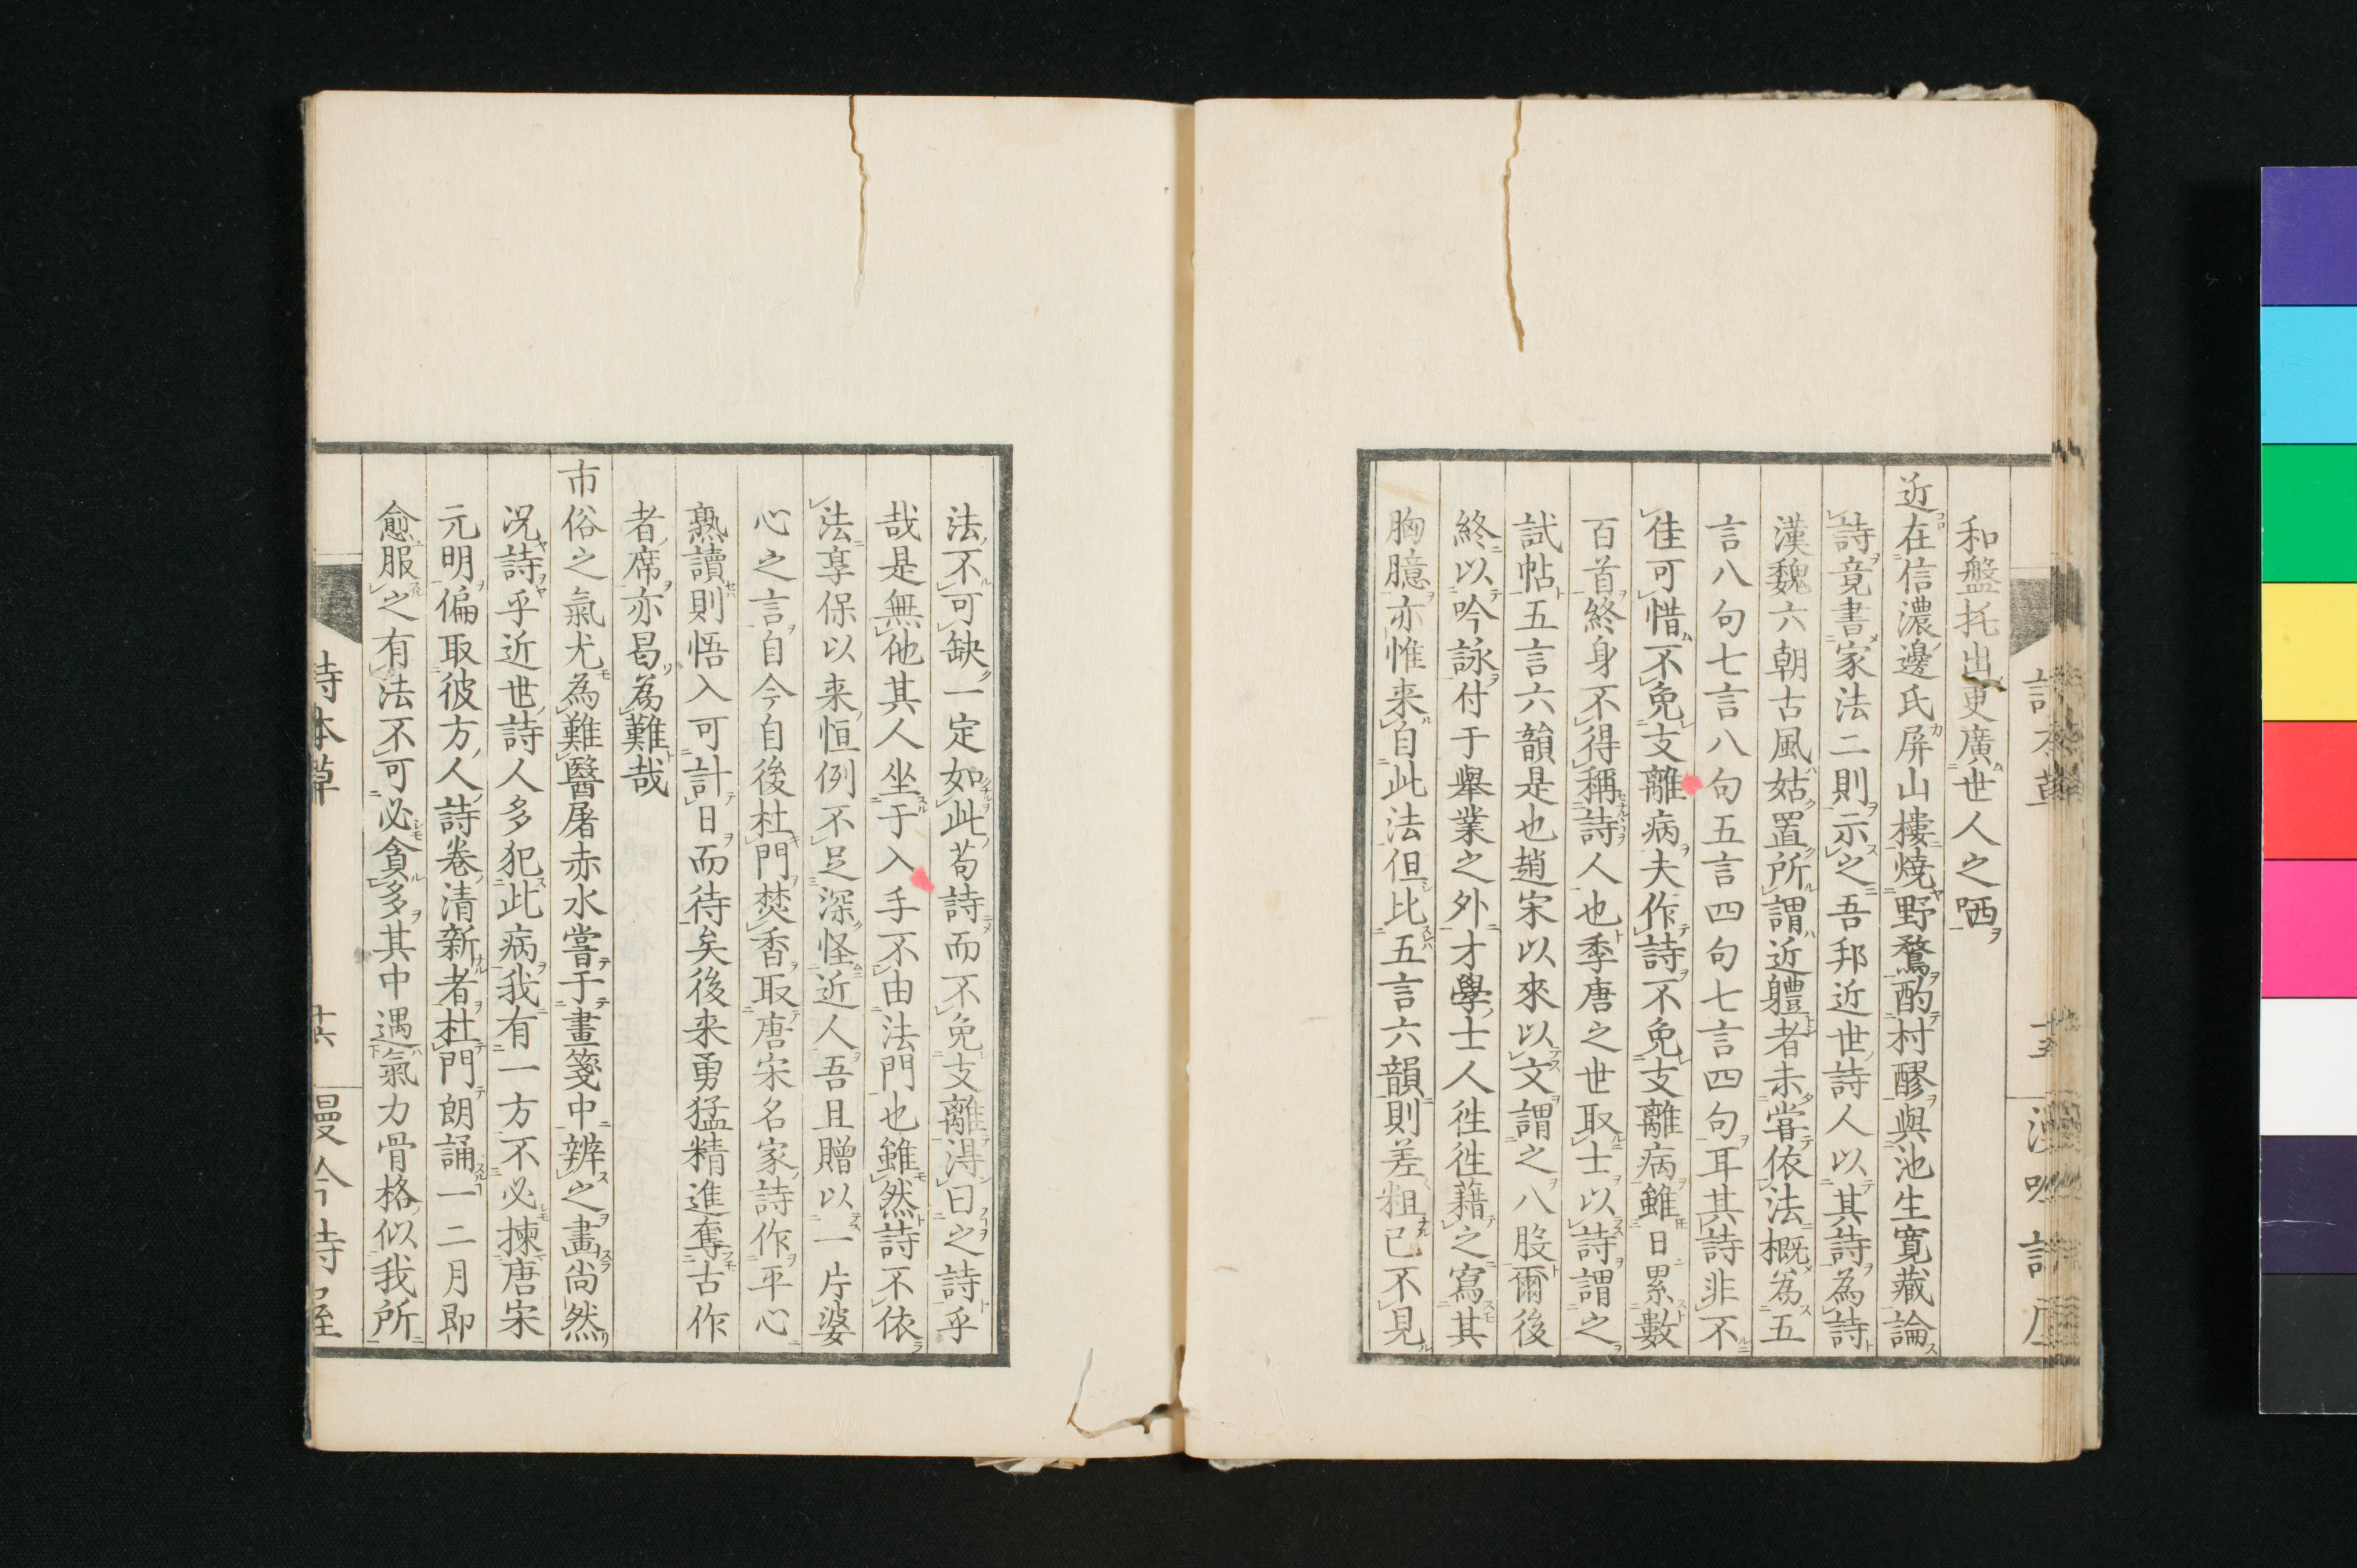 和盤托出更廣世人之哂
近在信濃邊氏屏山樓燒野鶩酌村醪與池生寛藏論
詩竟書家法二則示之吾邦近世詩人以其詩為詩
漢魏六朝古風姑置所謂近軆者未甞依法概為五
言八句七言八句五言四句七言四句耳其詩非不
佳可惜不免支離病夫作詩不免支離病雖日累數
百首終身不得稱詩人也季唐之世取士以詩謂之
試帖五言六韻是也趙宋以來以文謂之八股爾後
終以吟詠付于舉業之外才學士人徃徃藉之寫其
胸臆亦惟来自此法但比五言六韻則差粗已不見
法不可缺一定如此苟詩而不免支離得曰之詩乎
哉是無他其人坐于入手不由法門也雖然詩不依
法享保以来恒例不足深怪近人吾且贈以一片婆
心之言自今自後杜門焚香取唐宋名家詩作平心
熟讀則悟入可計日而待矣後来勇猛精進奪古作
者席亦曷為難哉
市俗之氣尤為難醫屠赤水嘗于畫箋中辨之畫尚然
况詩乎近世詩人多犯此病我有一方不必揀唐宋
元明偏取彼方人詩卷清新者杜門朗誦一二月即
愈服之有法不可必貪多其中遇氣力骨格似我所
詩本草
十六